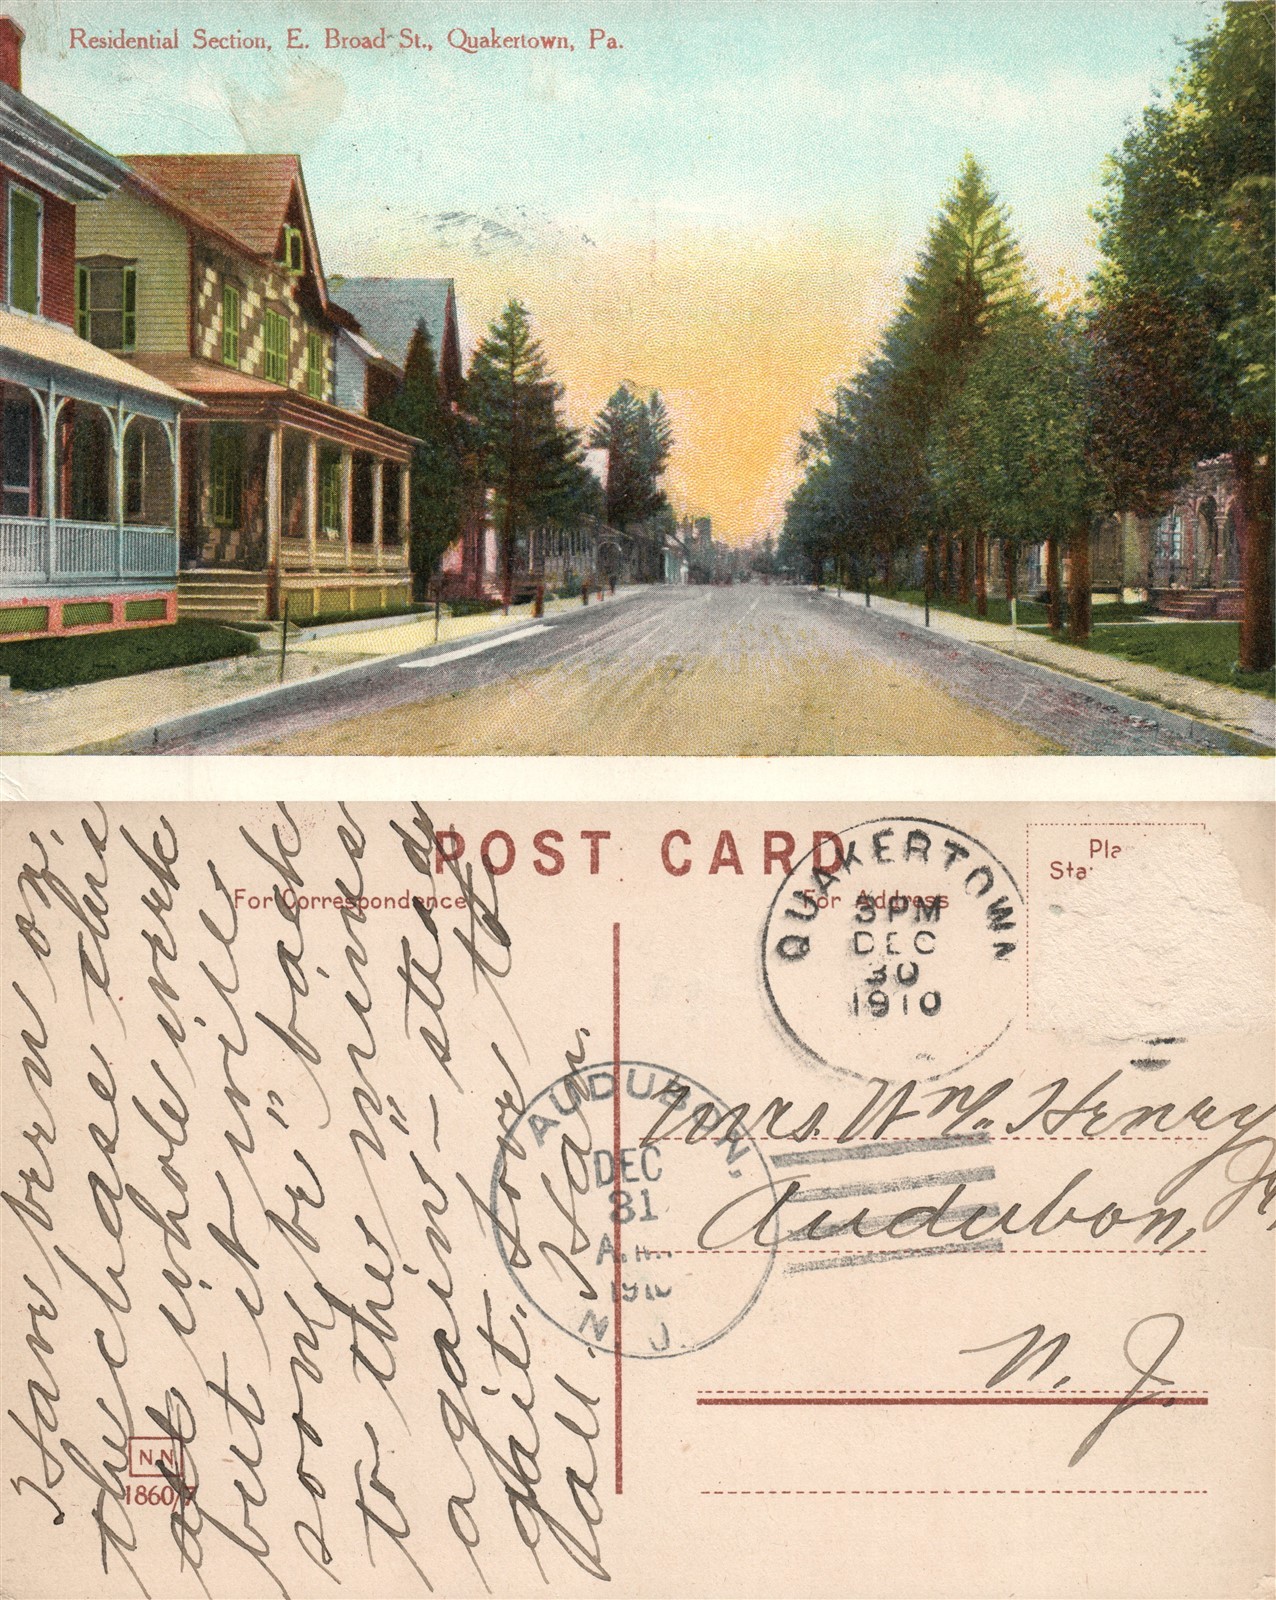 Residential Section, E. Broad St., Quakertown, Pa.
POST CARD
For Correspondence
For Address
Pla
Sta
QUAKERTOWN
3 PM
DEC
30
1910
AUDUBON.
DEC
31
A.M.
1910
N. J.
Mrs. Wm. Henry Jr,
Audubon,
N. J.
Have been on
the chase this
whole week
but it will
soon be "back
to the mines
again" - steady
gait. Love to
all. Han.
N.N.
1860/7